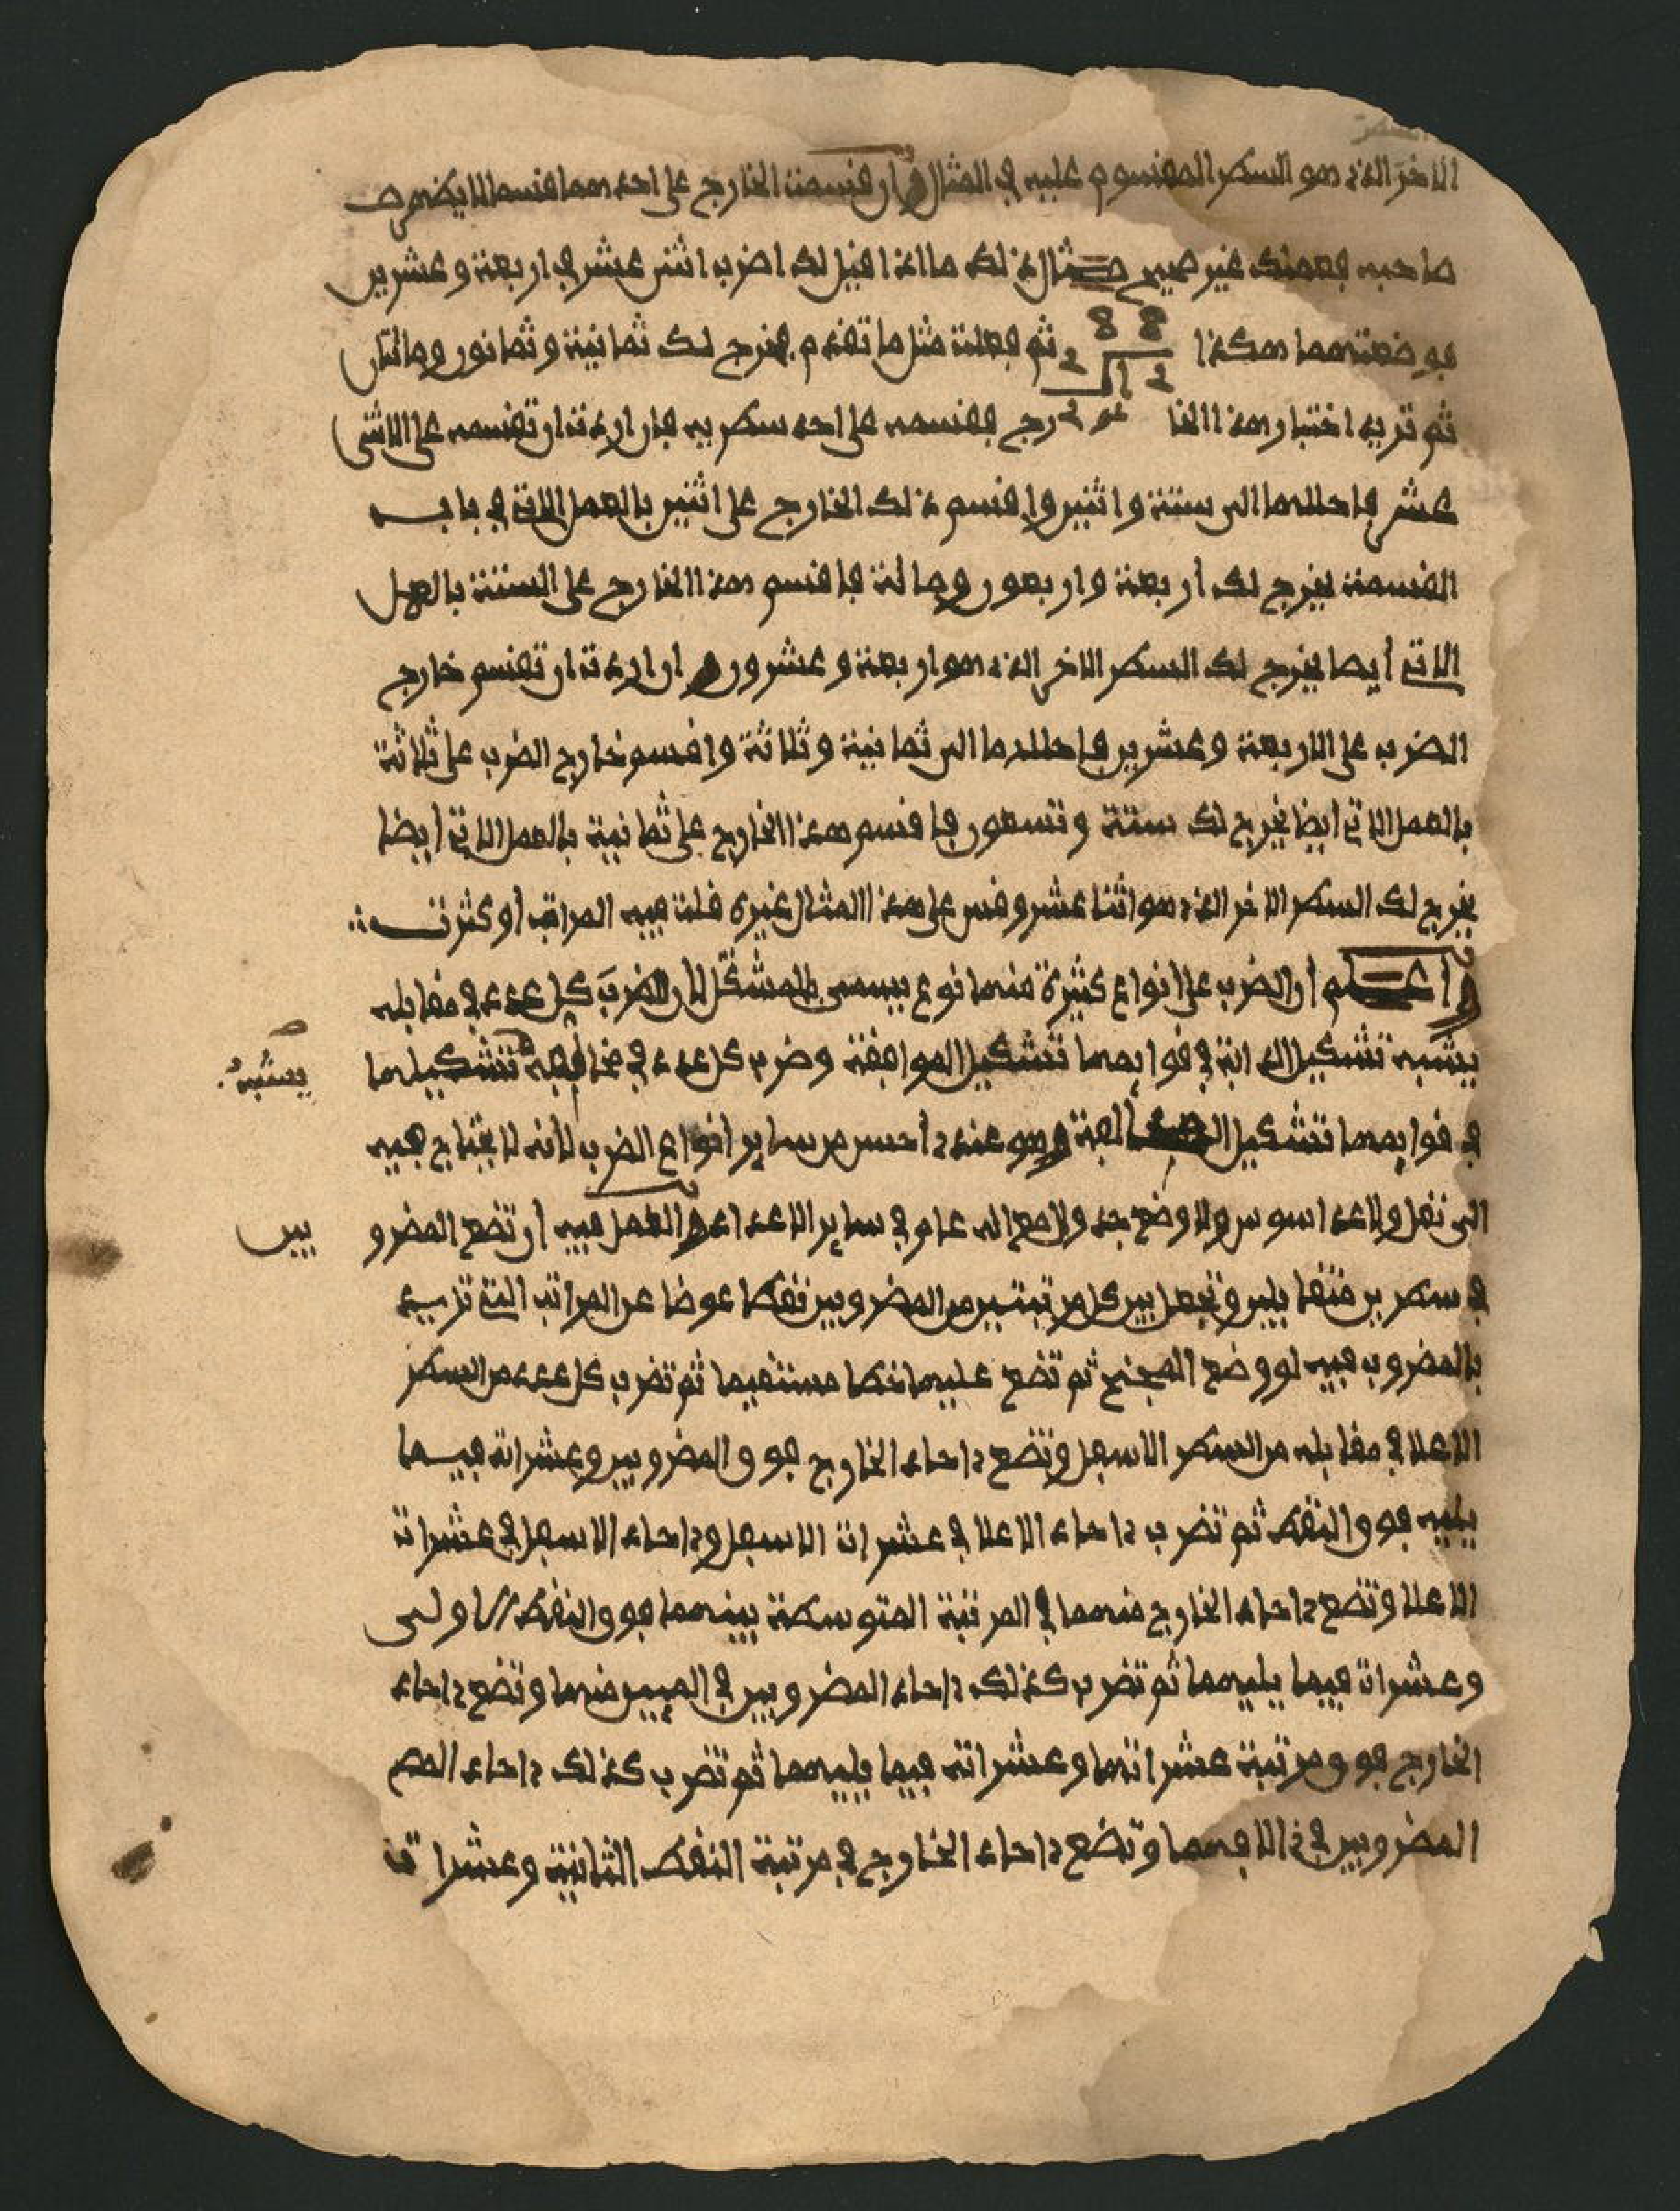 الاخر الذي هو السطر المقسوم عليه في المثال وان قسمت الخارج على احدهما فقسمه الا يظهر
صاحبه فعملك غير صحيح مثال ذلك ما اذا قيل لك اضرب اثنى عشر في اربعة وعشرين
فوضعتهما هكذا ثم فعلت مثل ما تقدم فخرج لك ثمانية وثمانون ومائتان
ثم تريد اختبار هذا الخارج فقسمه على احد سطريه فان اردت ان تقسمه على الاثنى
عشر فاحللها الى ستة واثنين واقسم ذلك الخارج على اثنين بالعمل الاتي في باب
القسمة يخرج لك اربعة واربعون ومائة فاقسم هذا الخارج على الستة بالعمل
الاتي أيضا يخرج لك السطر الاخر الذي هو اربعة وعشرون وان اردت ان تقسم خارج
الضرب على الاربعة وعشرين فاحللها الى ثمانية وثلاثة واقسم خارج الضرب على ثلاثة
بالعمل الاتي ايضا يخرج لك ستة وتسعون فاقسم هذا الخارج على ثمانية بالعمل الاتي ايضا
يخرج لك السطر الاخر الذي هو اثنا عشر وقس على هذا المثال غيره قلت فيه المراتب أو كثرت
واعلم أن الضرب على أنواع كثيرة منها نوع يسمى بالمشكل لان ضرب كل عدد في مقابله
يشبه تشكيل الدابة في قوايمها تشكيل الموافقة وضرب كل عدد في مخالفه تشكيلها
يشبه
في قوايمها تشكيل المخالفة وهو عندي أحسن من ساير انواع الضرب لأنه لا يحتاج فيه
الى نقل ولا عدد اسوس ولا وضع يد ولا مع انه عام في ساير الاعداد والعمل فيه أن تضع المضرو
بين
في سطرين متقابلين وتجعل بين كل مرتبتين من المضروبين نقطا عوضا عن المراتب التي تزيد
بالمضروب فيه لو وضع المجنح ثم تضع عليها خطا مستقيما ثم تضرب كل عدد من السطر
الاعلا في مقابله من السطر الاسفل وتضع ءاحاد الخارج فوق المضروبين وعشراته فيما
يليه فوق النقط ثم تضرب ءاحاد الاعلا في عشرات الاسفل وءاحاد الاسفل في عشرات
الاعلا وتضع ءاحاد الخارج منهما في المرتبة المتوسطة بينهما فوق النقط الاولى
وعشرات فيما يليهما ثم تضرب كذلك ءاحاد المضروبين في الميين منهما وتضع ءاحاد
الخارج فوق مرتبة عشراتهما وعشراته فيما يليهما ثم تضرب كذلك ءاحاد
المضروبين في الافهما وتضع ءاحاد الخارج في مرتبة النقط الثانية وعشراته